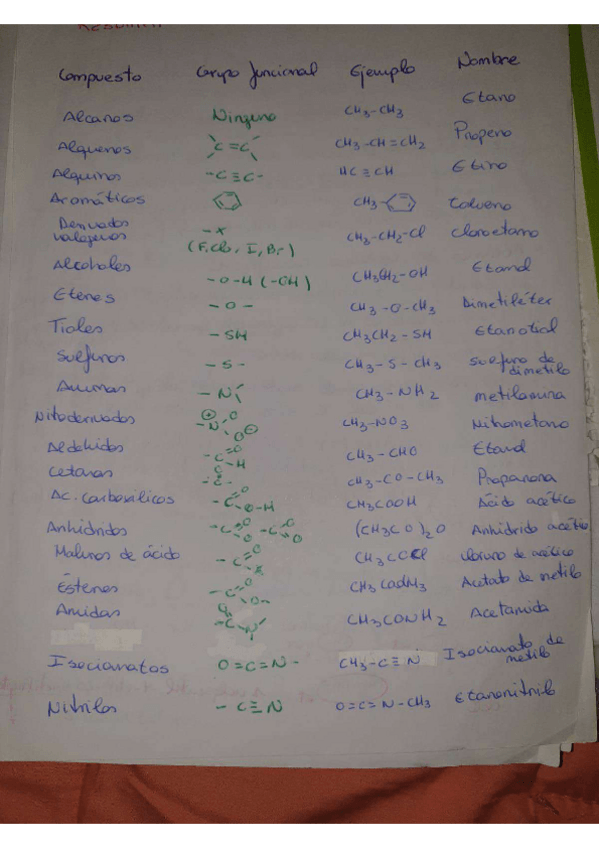 Compuesto Grupo funcional Ejemplo Nombre
Alcanos Ninguno CH3-CH3 Etano
Alquenos C=C CH3-CH=CH2 Propeno
Alquinos -C≡C- HC≡CH Etino
Aromáticos CH3- Tolueno
Derivados halogenos -X (F, Cl, I, Br) CH3-CH2-Cl Cloroetano
Alcoholes -O-H (-OH) CH3CH2-OH Etanol
Eteres -O- CH3-O-CH3 Dimetiléter
Tioles -SH CH3CH2-SH Etanotiol
Sulfuros -S- CH3-S-CH3 Sulfuro de dimetilo
Aminas -N CH3-NH2 metilamina
Nitroderivados -N O O CH3-NO3 Nitrometano
Aldehidos -C=O -H CH3-CHO Etanal
Cetonas -C- CH3-CO-CH3 Propanona
Ac. Carboxilicos -C=O O-H CH3COOH Ácido acético
Anhidridos -C=O -C=O (CH3CO)2O Anhidrido acético
Halunos de ácido -C=O X CH3COCl Cloruro de acético
Ésteres -C=O O- Acetato de metilo
Amidas O -C-N CH3CONH2 Acetamida
Isocianatos O=C=N- CH3-C≡N Isocianato de metilo
Nitrilos -C≡N O=C=N-CH3 Etanonitrilo